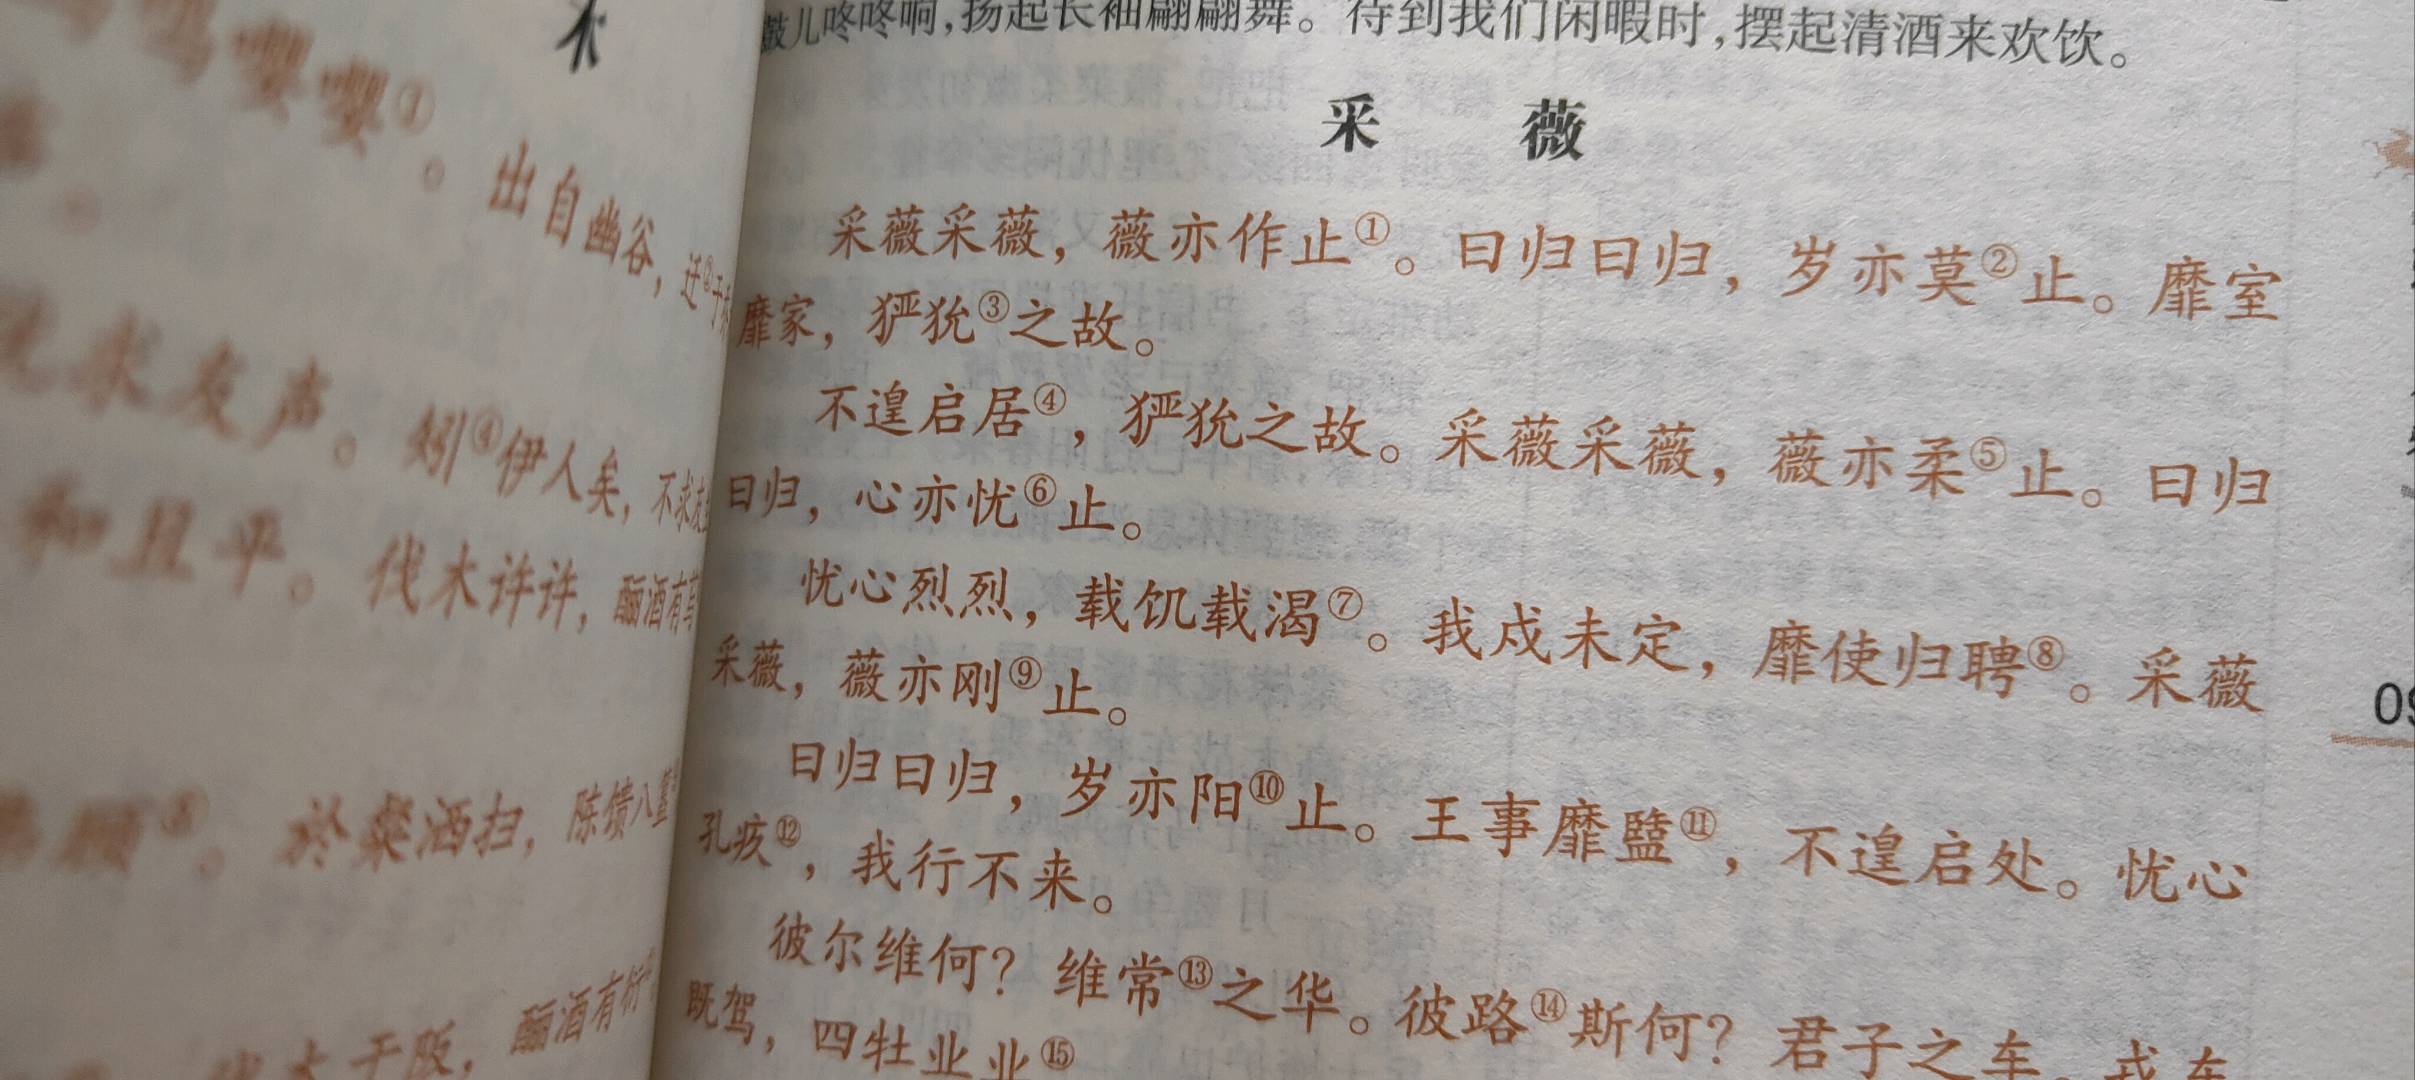 嘤嘤①。出自幽谷，迁②于
求友声。矧④伊人矣，不求友
和且平。伐木许许，酾酒有
⑧。於粲洒扫，陈馈八簋
于阪，酾酒有衍
鼓儿咚咚响，扬起长袖翩翩舞。待到我们闲暇时，摆起清酒来欢饮。
采 薇
采薇采薇，薇亦作止①。曰归曰归，岁亦莫②止。靡室
靡家，𤞤狁③之故。
不遑启居④，𤞤狁之故。采薇采薇，薇亦柔⑤止。曰归
曰归，心亦忧⑥止。
忧心烈烈，载饥载渴⑦。我戍未定，靡使归聘⑧。采薇
采薇，薇亦刚⑨止。
曰归曰归，岁亦阳⑩止。王事靡盬⑪，不遑启处。忧心
孔疚⑫，我行不来。
彼尔维何？维常⑬之华。彼路⑭斯何？君子之车。戎车
既驾，四牡业业⑮
09